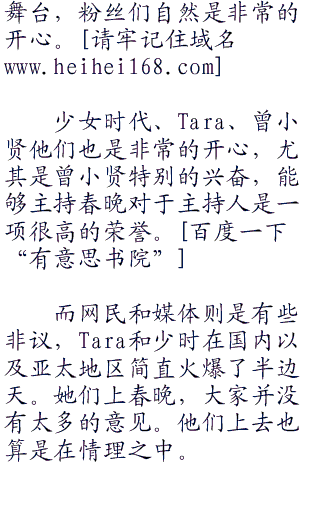 舞台，粉丝们自然是非常的
开心。[请牢记住域名
www.heihei168.com]
少女时代、Tara、曾小
贤他们也是非常的开心，尤
其是曾小贤特别的兴奋，能
够主持春晚对于主持人是一
项很高的荣誉。[百度一下
“有意思书院”]
而网民和媒体则是有些
非议，Tara和少时在国内以
及亚太地区简直火爆了半边
天。她们上春晚，大家并没
有太多的意见。他们上去也
算是在情理之中。